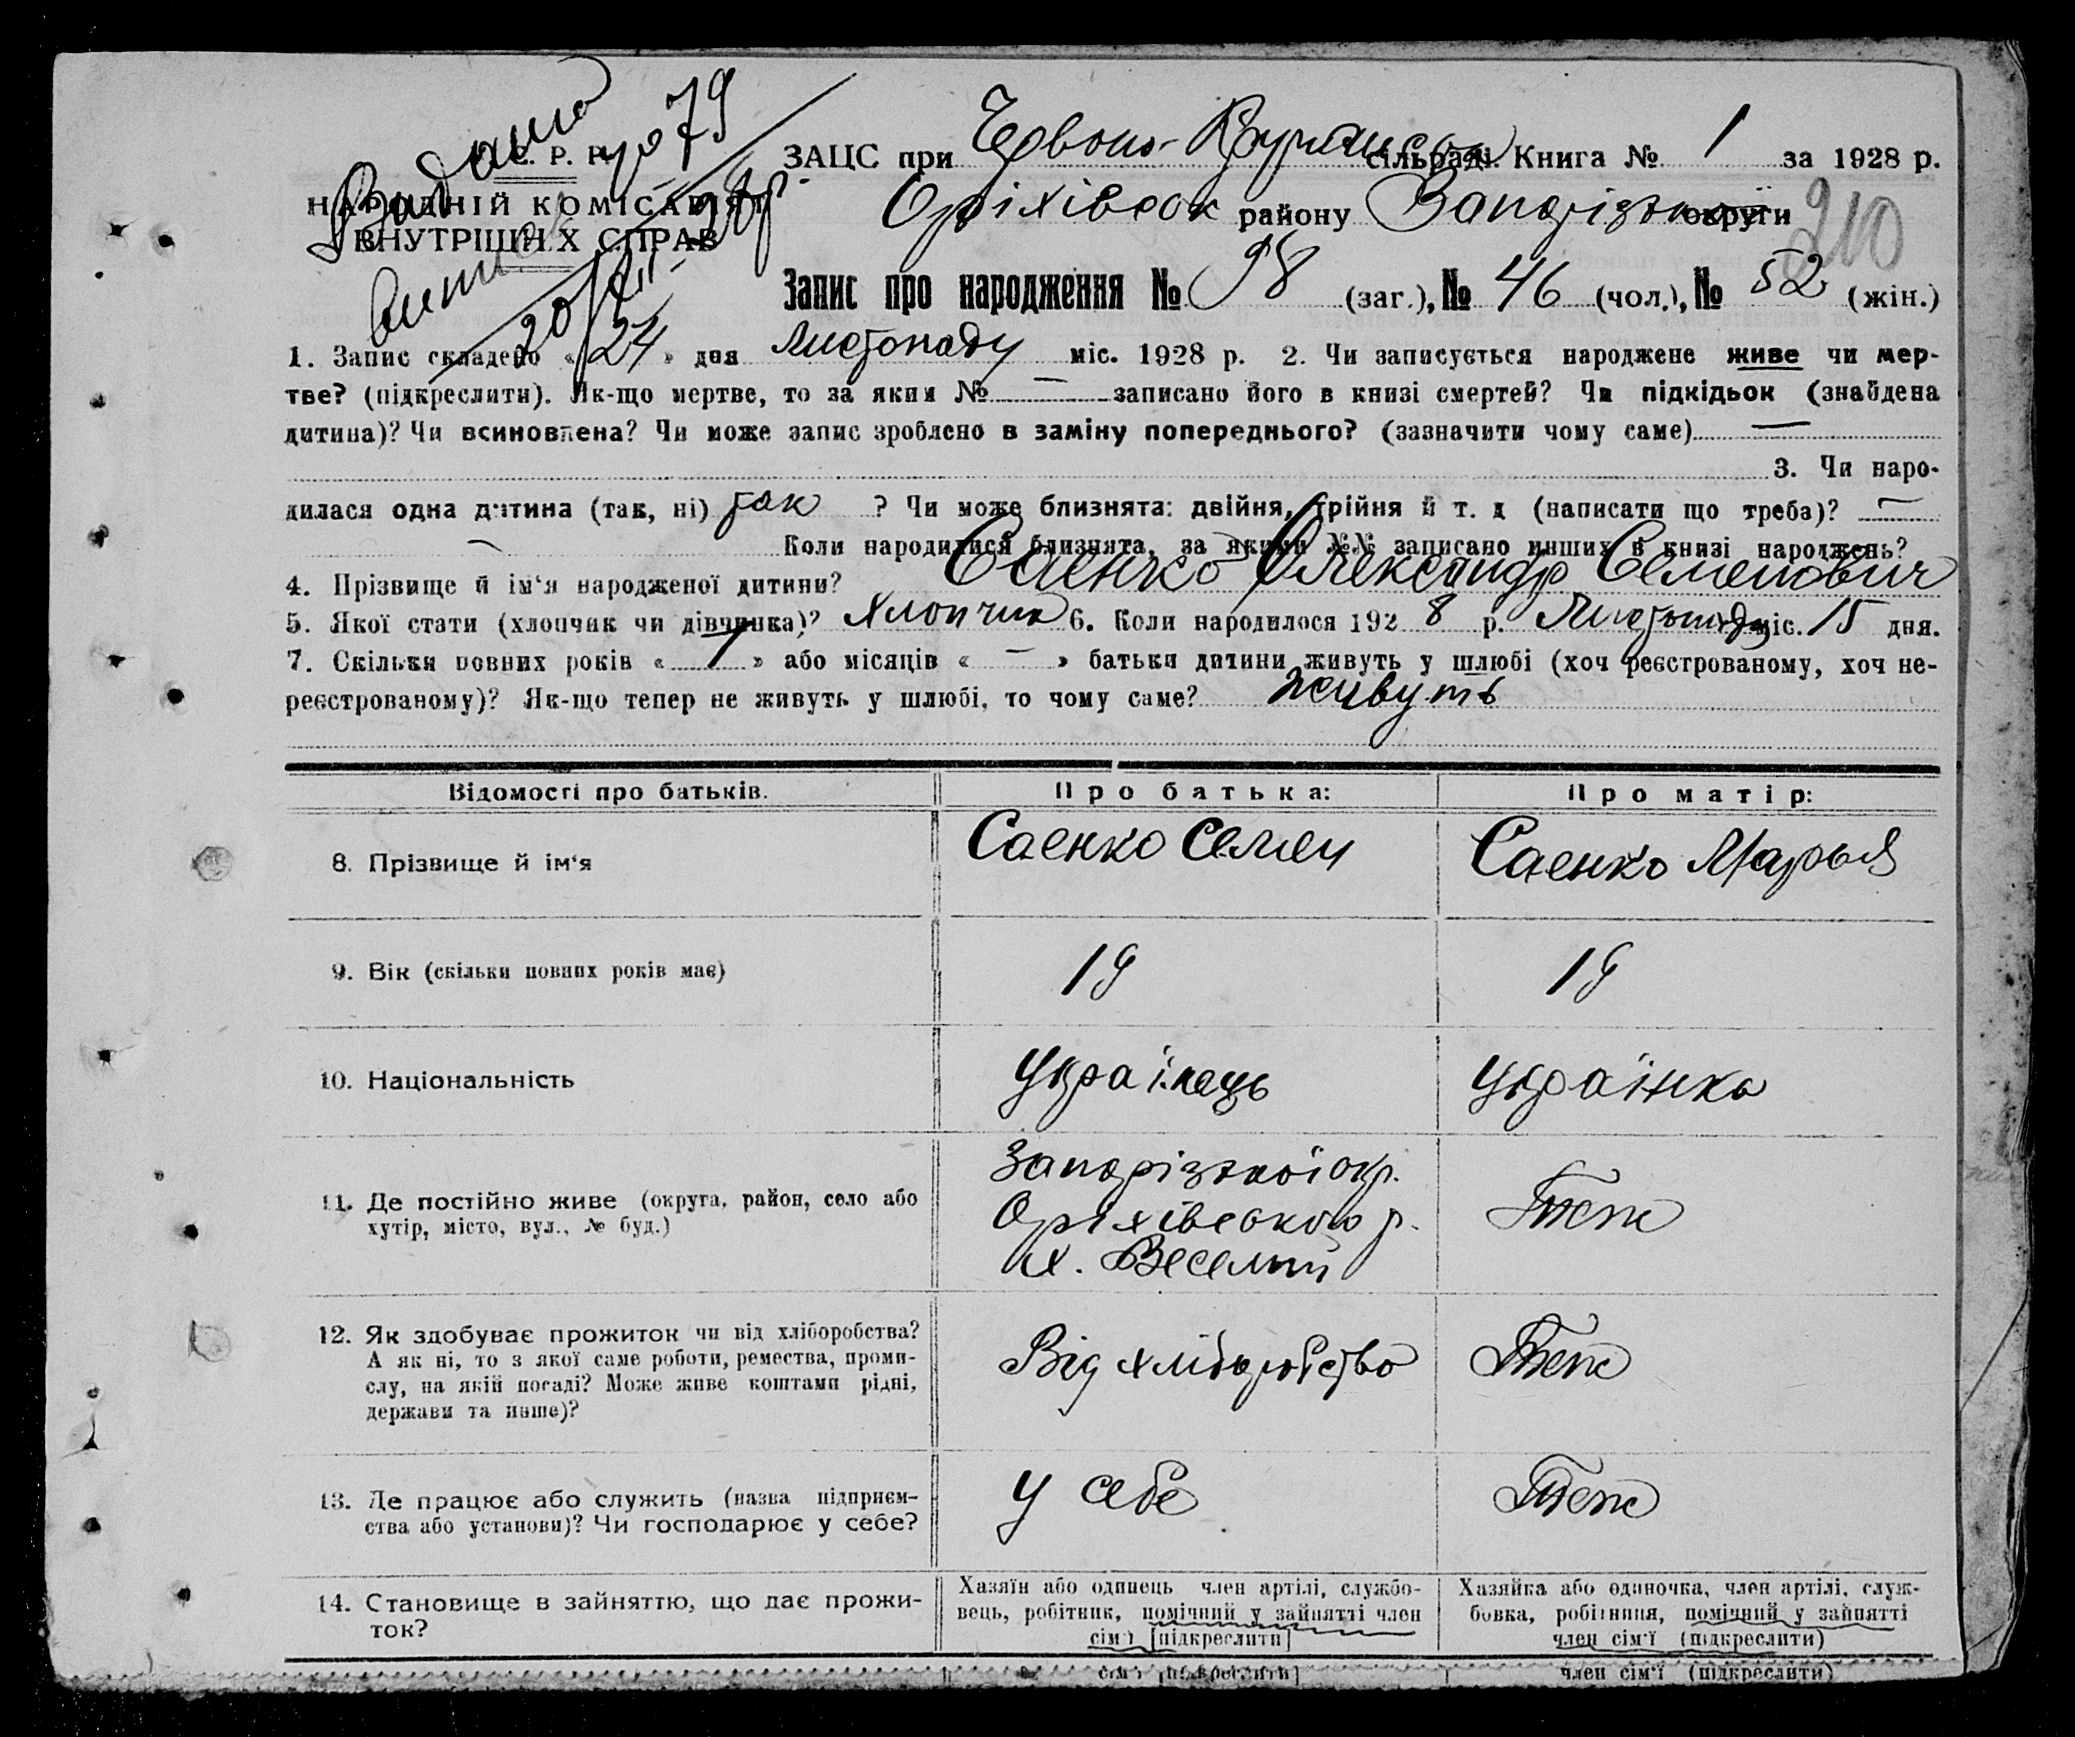 Видана
виписка
№ 79
20/XII-28р.
С. Р. Р.
НАРОДНІЙ КОМІСАРІЯТ
ВНУТРІШНІХ СПРАВ
ЗАЦС при Червоно- сільраді. Книга № 1 за 1928 р.
Оріхівськ району Запорізької округи
210
Запис про народження № 98 (заг.), № 46 (чол.), № 52 (жін.)
1. Запис складено « 24 » дня Листопаду міс. 1928 р. 2. Чи записується народжене живе чи мер-
тве? (підкреслити). Як-що мертве, то за яким № — записано його в книзі смертей? Чи підкідьок (знайдена
дитина)? Чи всиновлена? Чи може запис зроблено в заміну попереднього? (зазначити чому саме) —
3. Чи наро-
дилася одна дитина (так, ні) так ? Чи може близнята: двійня, трійня й т. д (написати що треба)? —
— Коли народилися близнята, за якими №№ записано инших в книзі народжень?
4. Прізвище й ім‘я народженої дитини? Саенко Олександр Семенович
5. Якої стати (хлопчик чи дівчинка)? Хлопчик 6. Коли народилося 1928 р. Листопаду міс. 15 дня.
7. Скільки повних років « 1 » або місяців « — » батьки дитини живуть у шлюбі (хоч реєстрованому, хоч не-
реєстрованому)? Як-що тепер не живуть у шлюбі, то чому саме? живуть
Відомості про батьків. Про батька: Про матір:
8. Прізвище й ім‘я Саенко Семен Саенко Марья
9. Вік (скільки повних років має) 19 19
10. Національність Українець Українка
11. Де постійно живе (округа, район, село або
хутір, місто, вул., № буд.)
Запорізької окр.
Оріхівського р.
х. Веселий
Теж
12. Як здобуває прожиток чи від хліборобства?
А як ні, то з якої саме роботи, ремества, проми-
слу, на якій посаді? Може живе коштами рідні,
держави та инше)?
Від хліборобство Теж
13. Де працює або служить (назва підприєм-
ства або установи)? Чи господарює у себе?
У себе Теж
14. Становище в зайняттю, що дає прожи-
ток?
Хазяїн або одинець член артілі, службо-
вець, робітник, помічний у зайнятті член
сім‘ї [підкреслити]
Хазяйка або одиночка, член артілі, служ-
бовка, робітниця, помічний у зайнятті
член сім‘ї (підкреслити)
сім‘ї [підкреслити] член сім‘ї (підкреслити)